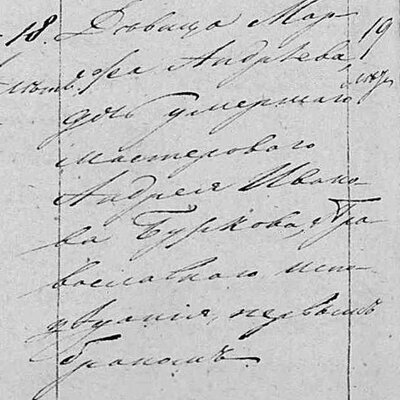 18. Дѣвица Мар- 19
лѣтъ фа Андрѣева
дочь умершаго
мастероваго
Андрея Ивано-
ва Буркова, Пра-
вославнаго испо-
вѣданія, первымъ
бракомъ.